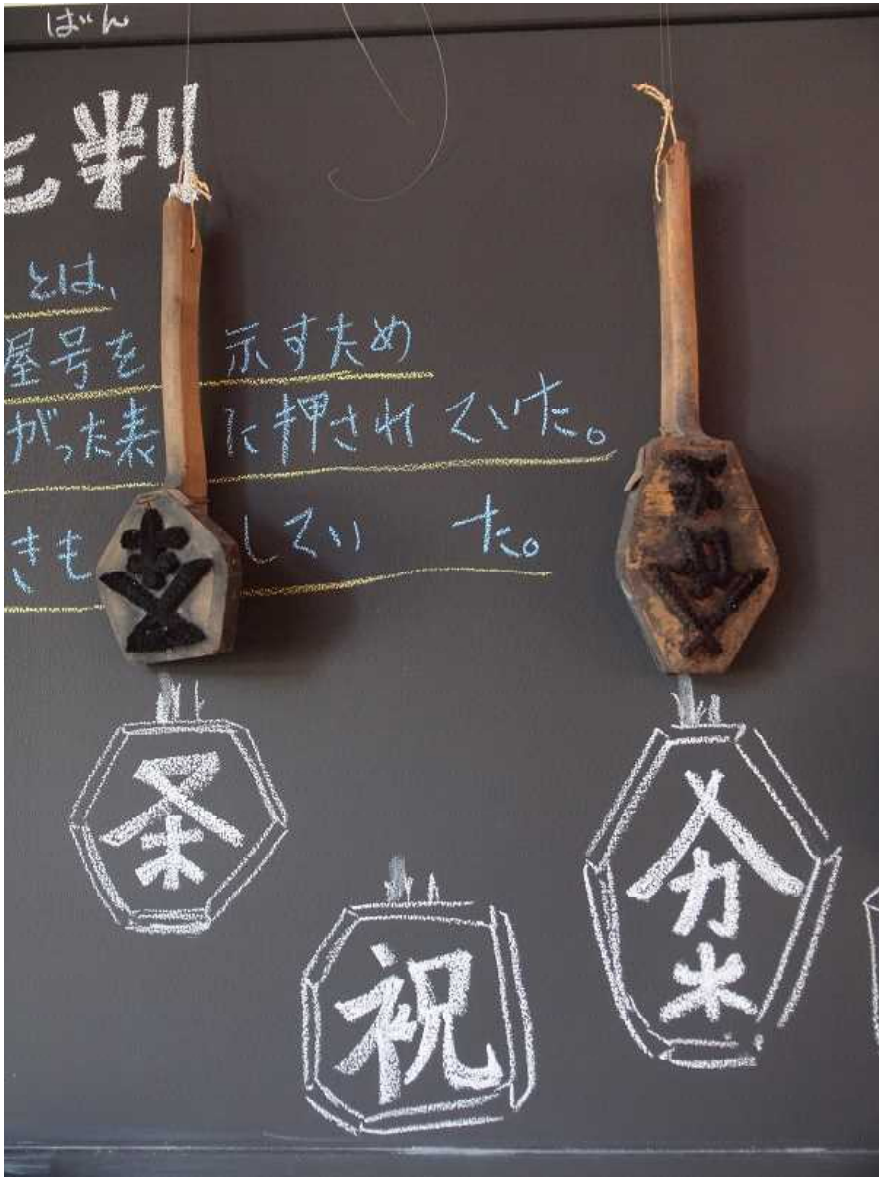 ばん
判
とは、
屋号を示すため
がった表に押されていた。
きもしていた。
条
祝
𠆢カ米